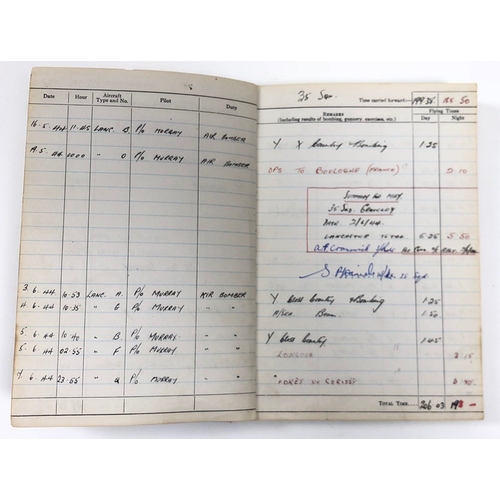 Date Hour Aircraft Type and No. Pilot Duty
16.5.44 11.45 LANC. B. P/O MURRAY AIR BOMBER
19.5.44 " O P/O MURRAY AIR BOMBER
3.6.44 10.53 LANC. A. P/O MURRAY AIR BOMBER
4.6.44 10.35 " G P/O MURRAY " "
5.6.44 10.40 " B. P/O MURRAY " "
5.6.44 02.55 " F P/O MURRAY " "
6.44 23.55 " P/O MURRAY " "
35 Sqn.
Time carried forward:— 199.35 185.50
Remarks
(Including results of bombing, gunnery, exercises, etc.)
Flying Times
Day Night
Y X Country & Bombing 1.25
OPS TO BOULOGNE (FRANCE)
SUMMARY FOR MAY
35 SQD. GRAVELEY
DATE 2/6/44
LANCASTER TOTAL 5.25 5.50
35 Sqn
Y Cross Country & Bombing 1.25
Bom. 1.50
Y Cross Country 1.45
LONGUES
Total Time 206 03